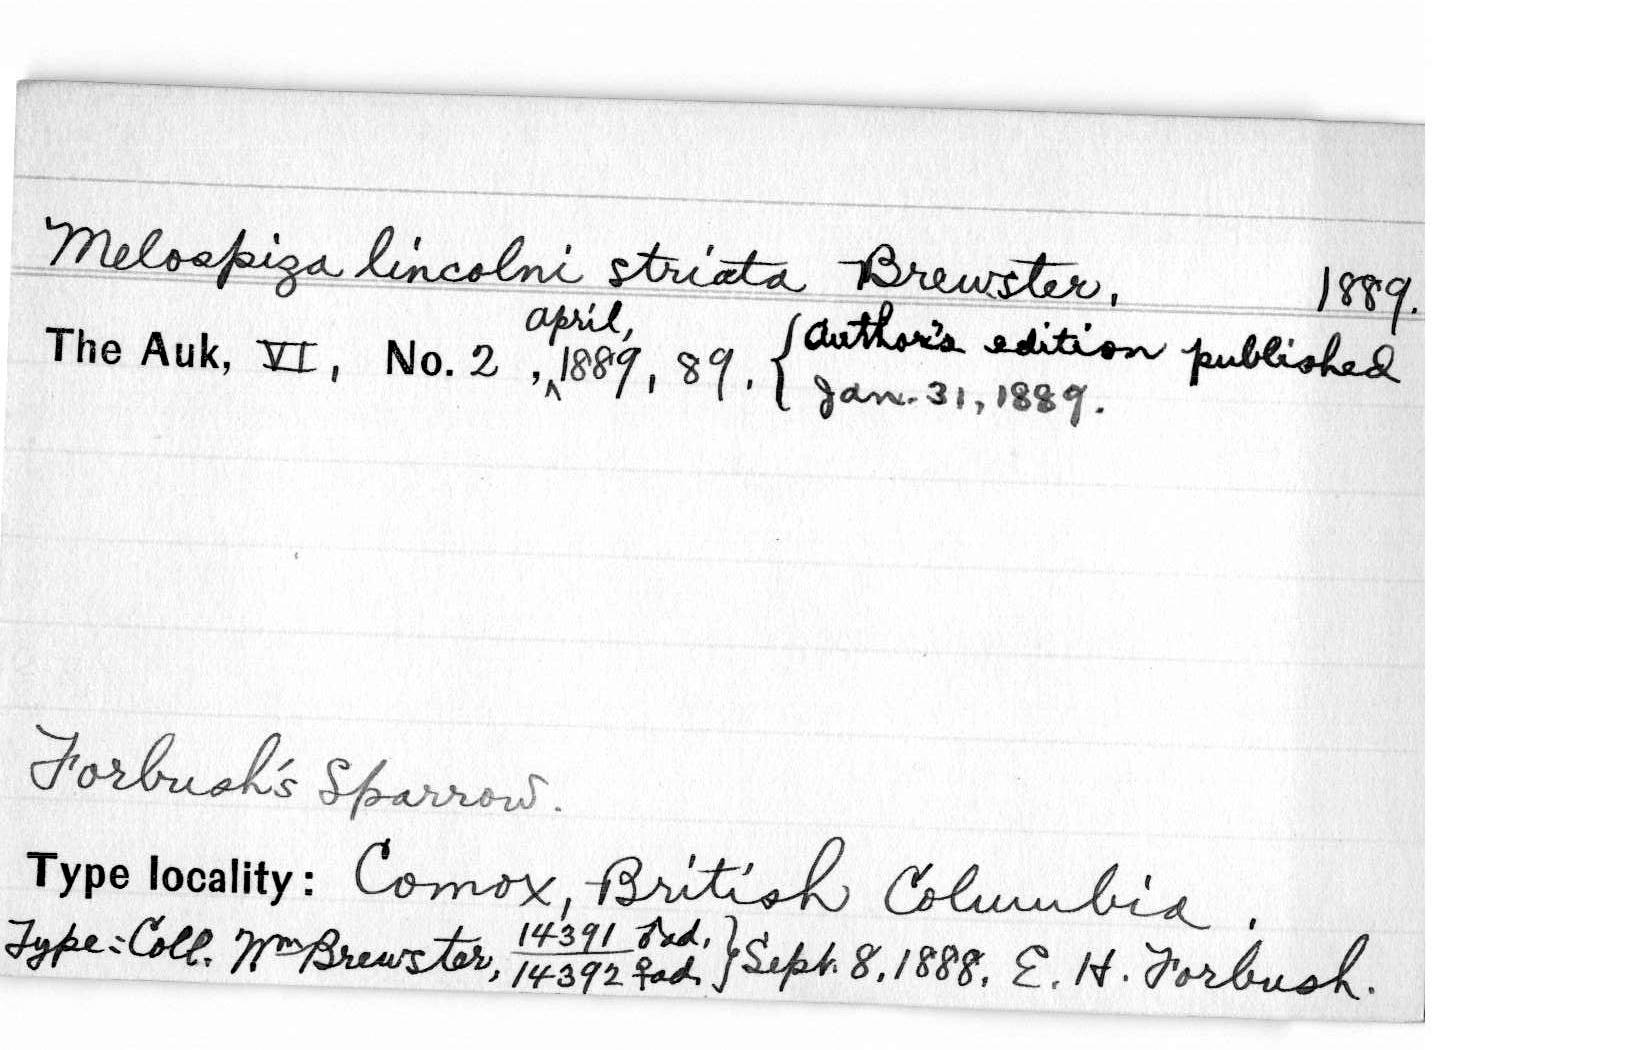 Melospiza lincolni striata Brewster, 1889.
april,
The Auk, VI, No. 2, ‸1889, 89. { Author's edition published
Jan. 31, 1889.
Forbush's Sparrow.
Type locality: Comox, British Columbia.
Type: Coll. Wm Brewster, 14391 ♂ad. } Sept. 8, 1888. E. H. Forbush.
14392 ♀ad.